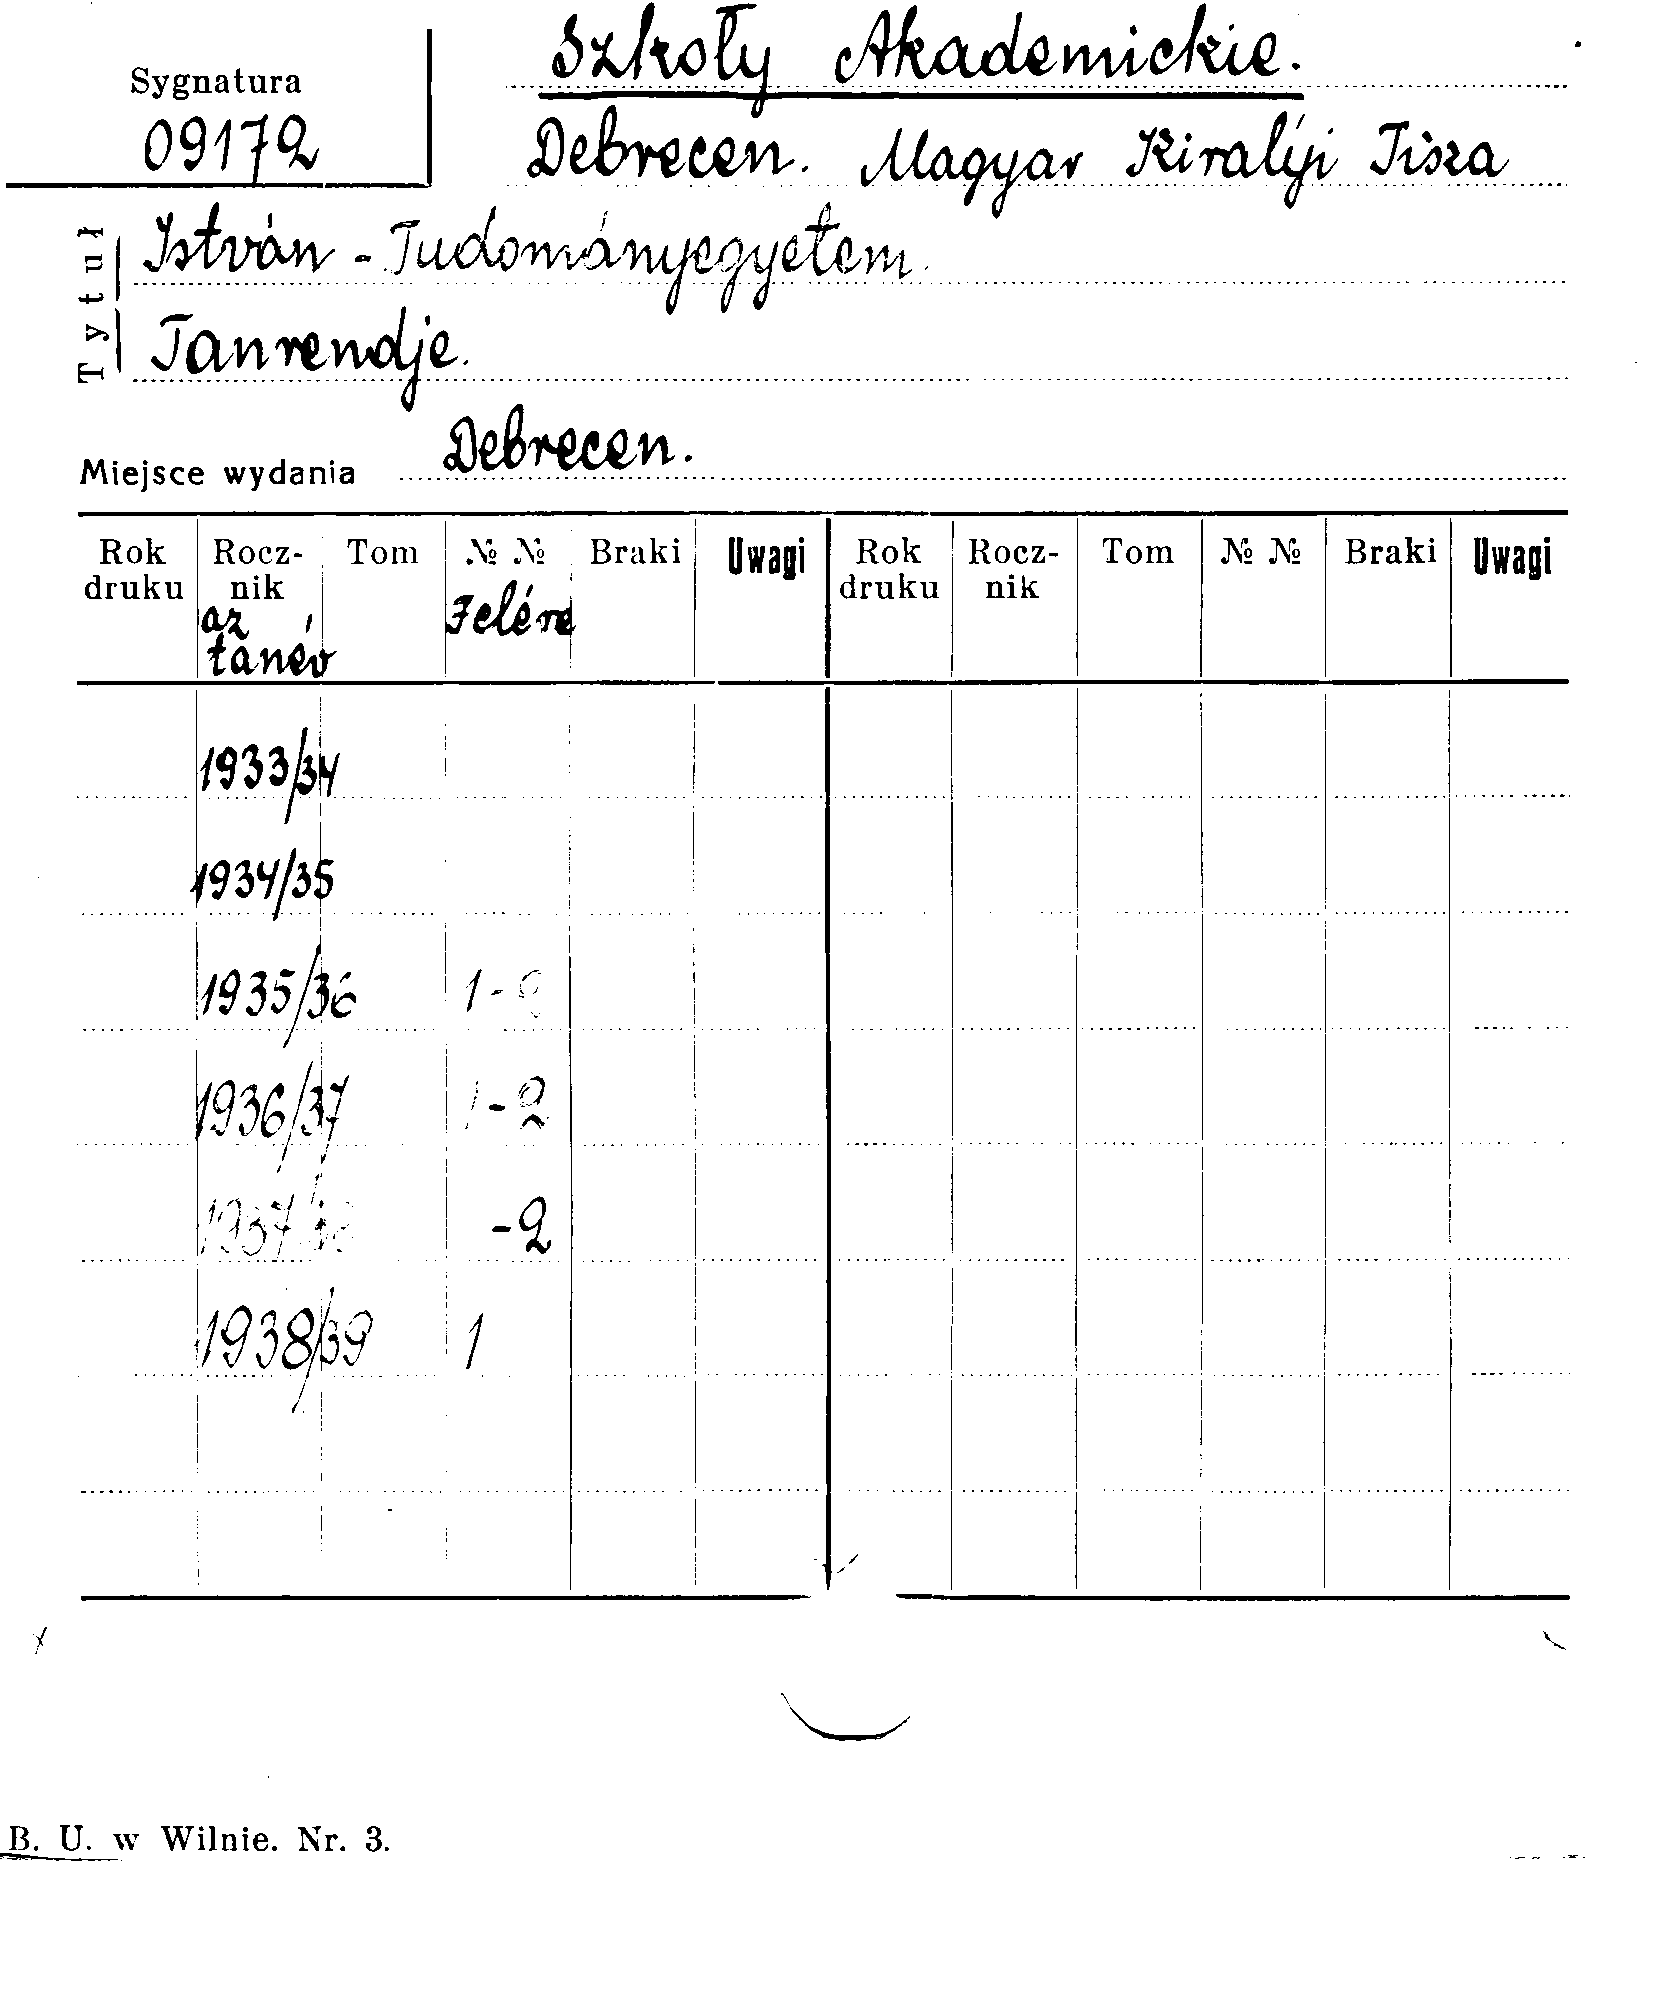 Szkoły Akademickie.
Sygnatura
09172
Debrecen. Magyar Királyi Tisza
Tytuł
István - Tudományegyetem.
Tanrendje.
Miejsce wydania Debrecen.
Rok druku Rocz-nik Tom № № Braki Uwagi Rok druku Rocz-nik Tom № № Braki Uwagi
az tanév
1933/34
1934/35
1935/36 1-
1936/37 1-2
1937/38 -2
1938/39 1
B. U. w Wilnie. Nr. 3.